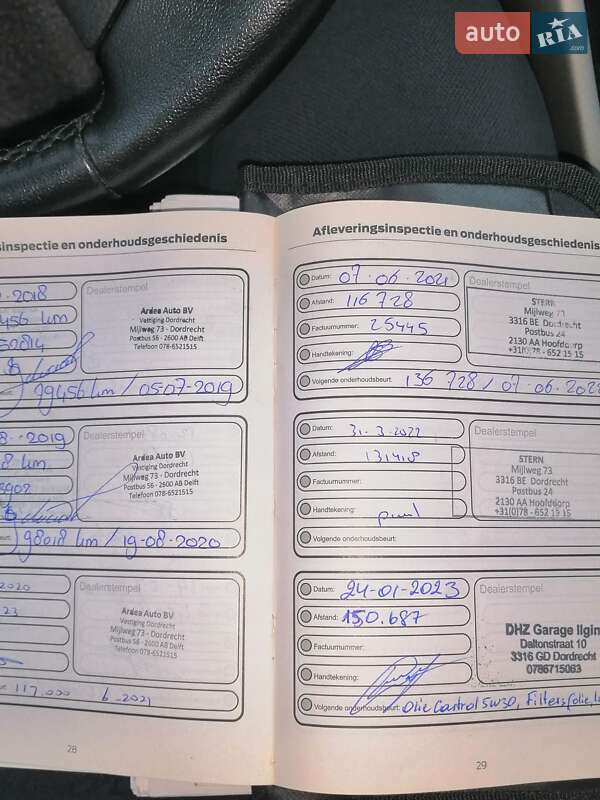 auto RIA.com
sinspectie en onderhoudsgeschiedenis
2018
Dealerstempel
Ardea Auto BV
Vestiging Dordrecht
Mijlweg 73 - Dordrecht
Postbus 56 - 2600 AB Delft
Telefoon 078-6521515
456 km
50814
79456 km / 05-07-2019
8-2019
Dealerstempel
Ardea Auto BV
Vestiging Dordrecht
Mijlweg 73 - Dordrecht
Postbus 56 - 2600 AB Delft
Telefoon 078-6521515
8 km
3902
98018 km / 19-08-2020
2020
Dealerstempel
Ardea Auto BV
Vestiging Dordrecht
Mijlweg 73 - Dordrecht
Postbus 56 - 2600 AB Delft
Telefoon 078-6521515
23
117.000 6-2021
28
Afleveringsinspectie en onderhoudsgeschiedenis
Datum: 07-06-2021
Dealerstempel
STERN
Mijlweg 73
3316 BE Dordrecht
Postbus 24
2130 AA Hoofddorp
+31(0)78 - 652 15 15
Afstand: 116 728
Factuurnummer: 25445
Handtekening:
Volgende onderhoudsbeurt: 136 728 / 07-06-202
Datum: 31-3-2022
Dealerstempel
STERN
Mijlweg 73
3316 BE Dordrecht
Postbus 24
2130 AA Hoofddorp
+31(0)78 - 652 15 15
Afstand: 131418
Factuurnummer:
Handtekening:
Volgende onderhoudsbeurt:
Datum: 24-01-2023
Dealerstempel
DHZ Garage Ilgin
Daltonstraat 10
3316 GD Dordrecht
0786715063
Afstand: 150.687
Factuurnummer:
Handtekening:
Volgende onderhoudsbeurt: Olie Castrol 5W30, Filters, olie,
29